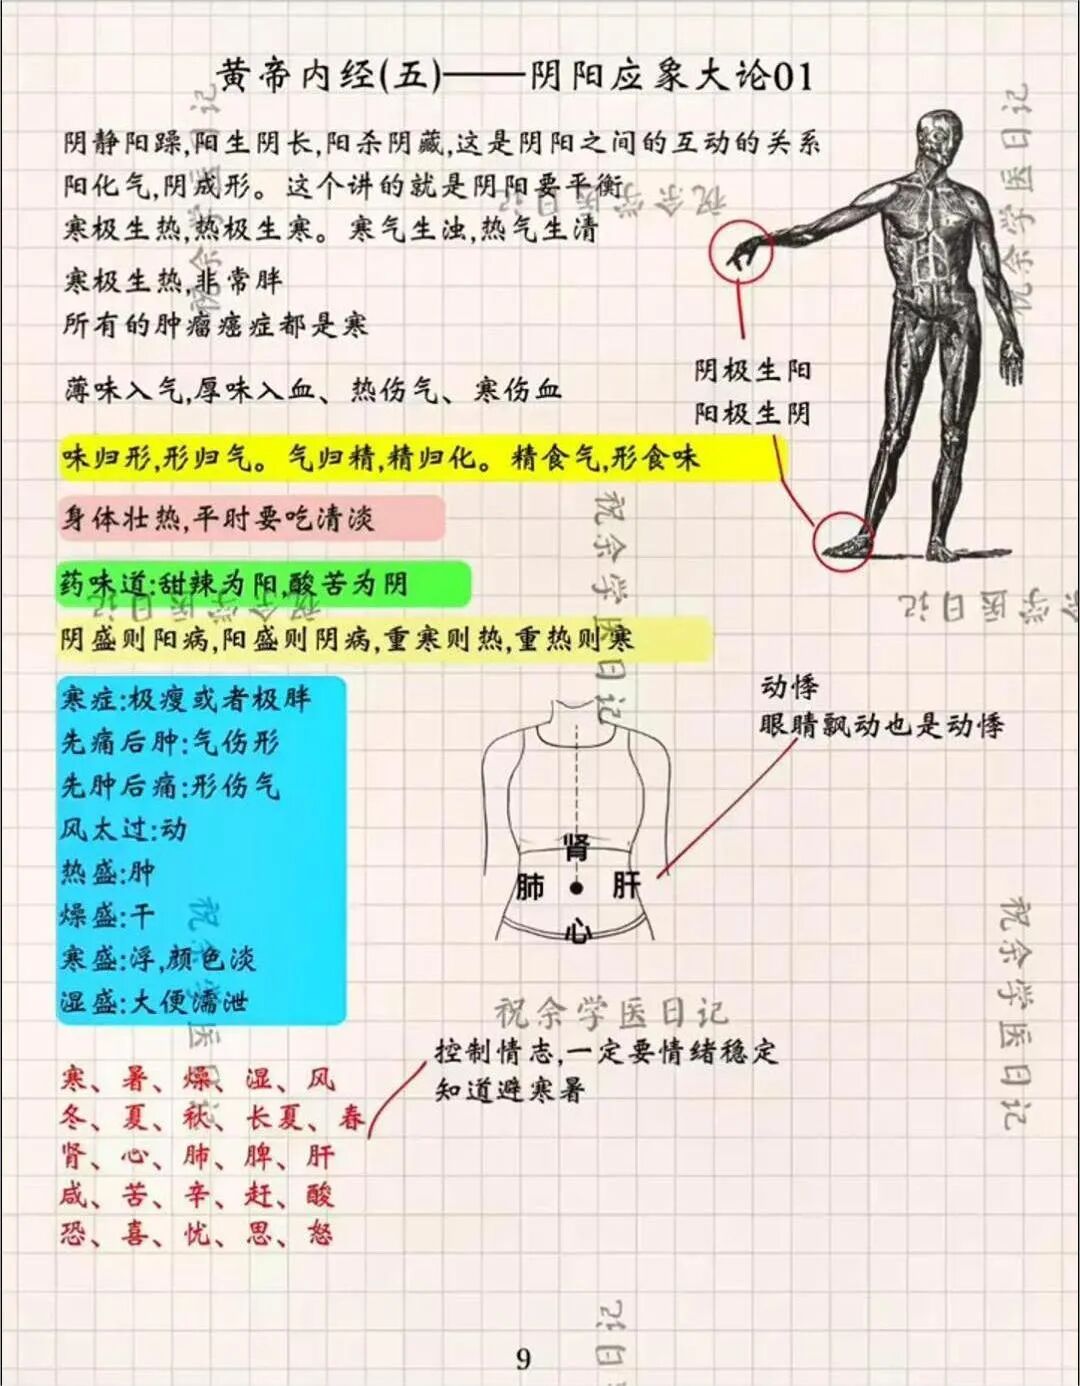 黄帝内经(五)——阴阳应象大论01
阴静阳躁,阳生阴长,阳杀阴藏,这是阴阳之间的互动的关系
阳化气,阴成形。这个讲的就是阴阳要平衡
寒极生热,热极生寒。寒气生浊,热气生清
寒极生热,非常胖
所有的肿瘤癌症都是寒
薄味入气,厚味入血、热伤气、寒伤血
阴极生阳
阳极生阴
味归形,形归气。气归精,精归化。精食气,形食味
身体壮热,平时要吃清淡
药味道:甜辣为阳,酸苦为阴
阴盛则阳病,阳盛则阴病,重寒则热,重热则寒
寒症:极瘦或者极胖
先痛后肿:气伤形
先肿后痛:形伤气
风太过:动
热盛:肿
燥盛:干
寒盛:浮,颜色淡
湿盛:大便濡泄
动悸
眼睛飘动也是动悸
肾
肺
肝
心
控制情志,一定要情绪稳定
知道避寒暑
寒、暑、燥、湿、风
冬、夏、秋、长夏、春
肾、心、肺、脾、肝
咸、苦、辛、赶、酸
恐、喜、忧、思、怒
9
祝余学医日记
祝余学医日记
祝余学医日记
祝余学医日记
祝余学医日记
祝余学医日记
祝余学医日记
祝余学医日记
祝余学医日记
日记